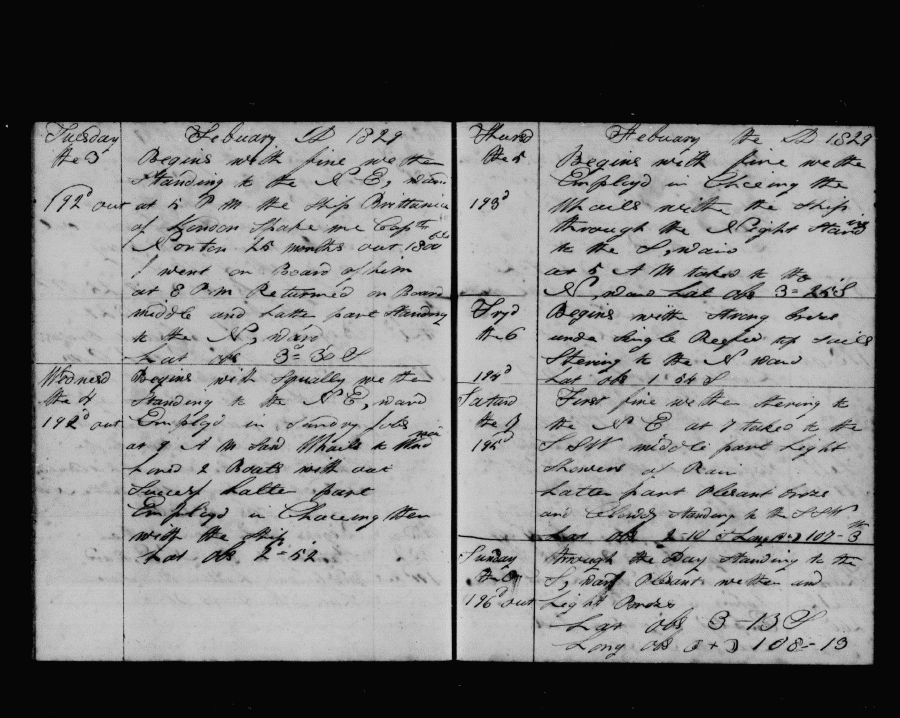 Tuesday Febuary D 1829
the 3 Begins with fine wether
Standing to the N E, ward
192d out at 5 P M the Ship Brettania
of London Spake me Capt
Norton 25 months out 1800 bls
I went on Board of him
at 8 P M Returned on Board
middle and Latter part Standing
to the N, ward
Lat obs 3=30 S
Wednesd Begins with Squally wether
the 4 Standing to the N E, ward
192d out Employd in Sundry Jobs
at 9 A M Saw Whails to Wind
Lored 2 Boats with out
Sucess Latter part
Employd in Chaceing them
with the Ship
Lat obs 2=52
Thursd Febuary the D 1829
the 5 Begins with fine wethe
Employd in Chaceing the
193d Whails with the Ship
through the Night Standing
to the S, ward
at 5 A M tacked to the
N, ward Lat obs 3=25 S
Fryd Begins with Strong breze
the 6 under Single Reefed top Sails
Stering to the N ward
194d Lat obs 1 54 S
Saturd First fine wether stering to
the 7 the N E at 7 tacked to the
195d S S W middle part Light
Showers of Rain
Latter part Plesant breze
and Cloudy standing to the S S W
Lat obs 2-10 S Long 107-3
Sunday through the Day standing to the
the 8 S, ward Plesant wether and
196d out Light Brezes
Lat obs 3-13 S
Long obs 108-13